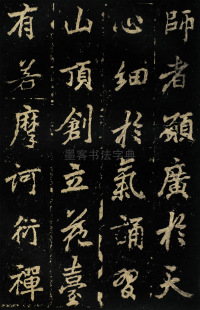 師者願廣於天
心細於氣誦習
山頂創立花臺
有若摩訶衍禪
墨客书法字典